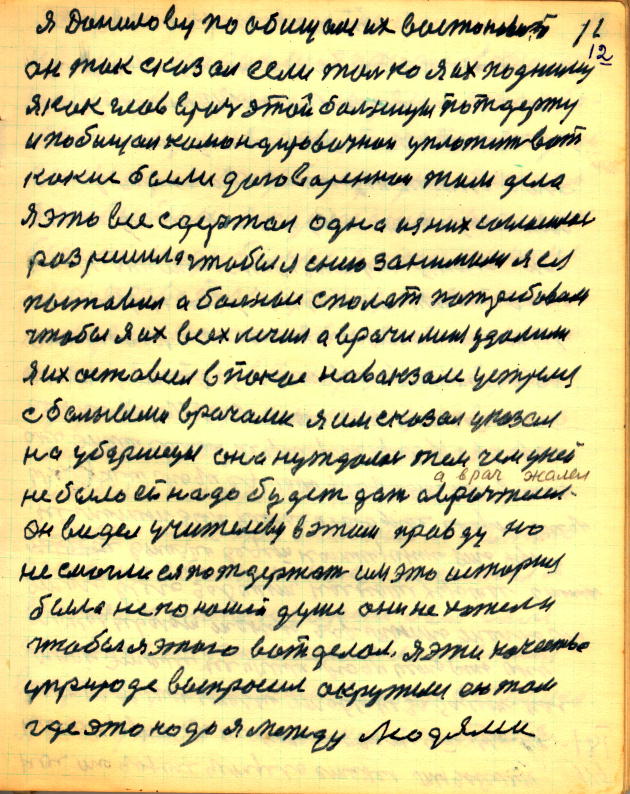 я Данилову пообищал их востоновит 12
он так сказал если толко я их подниму
я как глав врач этой болницы потдержу
и пообищал камандировачнои уплотит вот
какие были договаренаи тили дела
Я это все сдержал одна из них согласное
разришила чтобы я снею занимали я ея
поставил а болные сполат потребовали
чтобы я их всех личил а врачи мине удалили
я их оставил в покое на вакзале устреиз
с болными врачами я им сказал указал
на уборшицы она нуждалас тем чем у ней
а врач жалел
не было ей надо будет дат а врач жалел.
Он видел учителеву в этом правду но
не смогли ея потдержат им это история
была не по ношей душе они не хотели
чтобы я этого вот делал. Я эти качество
у природе выпросил окружили ею там
где это надо я между людями